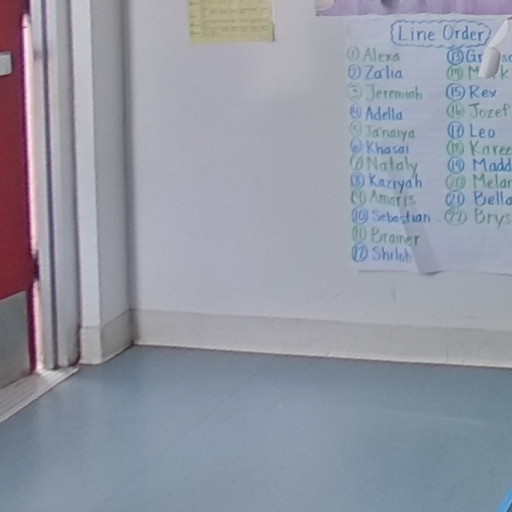 Line Order
① Alexa
② Za'lia
③ Jeremiah
④ Adella
⑤ Ja'naiya
⑥ Khasai
⑦ Nataly
⑧ Kaziyah
⑨ Amaris
⑩ Sebastian
⑪ Bramer
⑫ Shiloh
⑬ Gr
⑭ M
⑮ Rex
⑯ Jozef
⑰ Leo
⑱ Karee
⑲ Madd
Melan
Bella
Brys